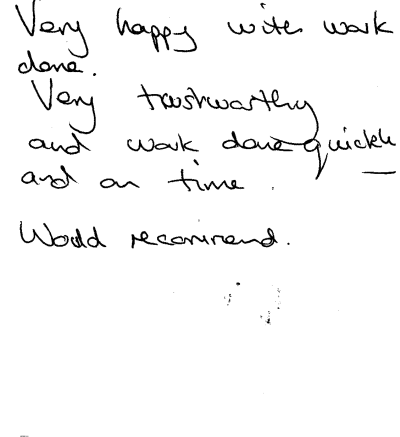 Very happy with work
done.
Very trustworthy
and work done quickly
and on time.
Would recommend.